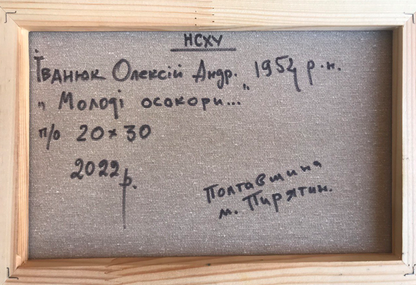 НСХУ
Іванюк Олексій Андр. 1954 р.н.
„ Молоді осокори..."
п/о 20×30
2022р.
Полтавщина
м. Пирятин.